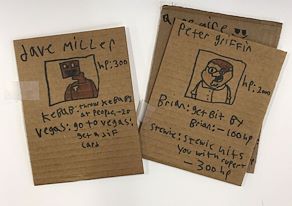 dave miller
hp:300
KEBAB: throw KEBABS
at people, -25
Vegas: go to vegas:
get a jif
card
peter griffin
hp: 2000
Brian: get Bit BY
Brian: -100hp
stewie: stewie hits
you with rupert
-300 hp